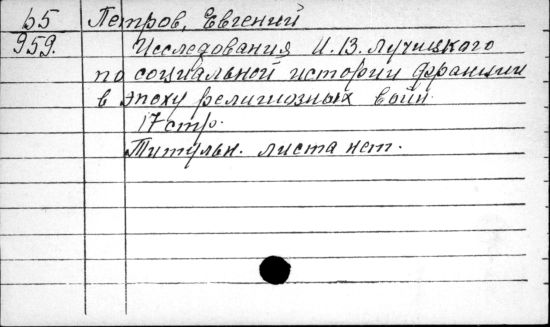 65 Петров, Евгений
959. Исследования И.В. Лучицкого
по социальной истории Франции
в эпоху религиозных войн.
17 стр.
Титульн. листа нет.